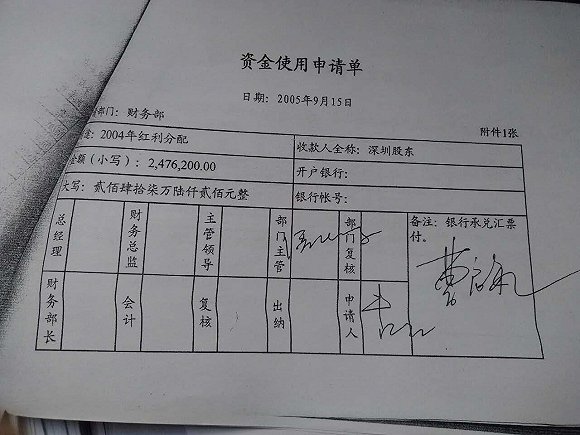 资金使用申请单
日期：2005年9月15日
部门：财务部
附件1张
：2004年红利分配
收款人全称：深圳股东
金额（小写）：2,476,200.00
开户银行：
大写：贰佰肆拾柒万陆仟贰佰元整
银行帐号：
总经理
财务总监
主管领导
部门主管
部门复核
备注：银行承兑汇票
付。
财务部长
会计
复核
出纳
申请人